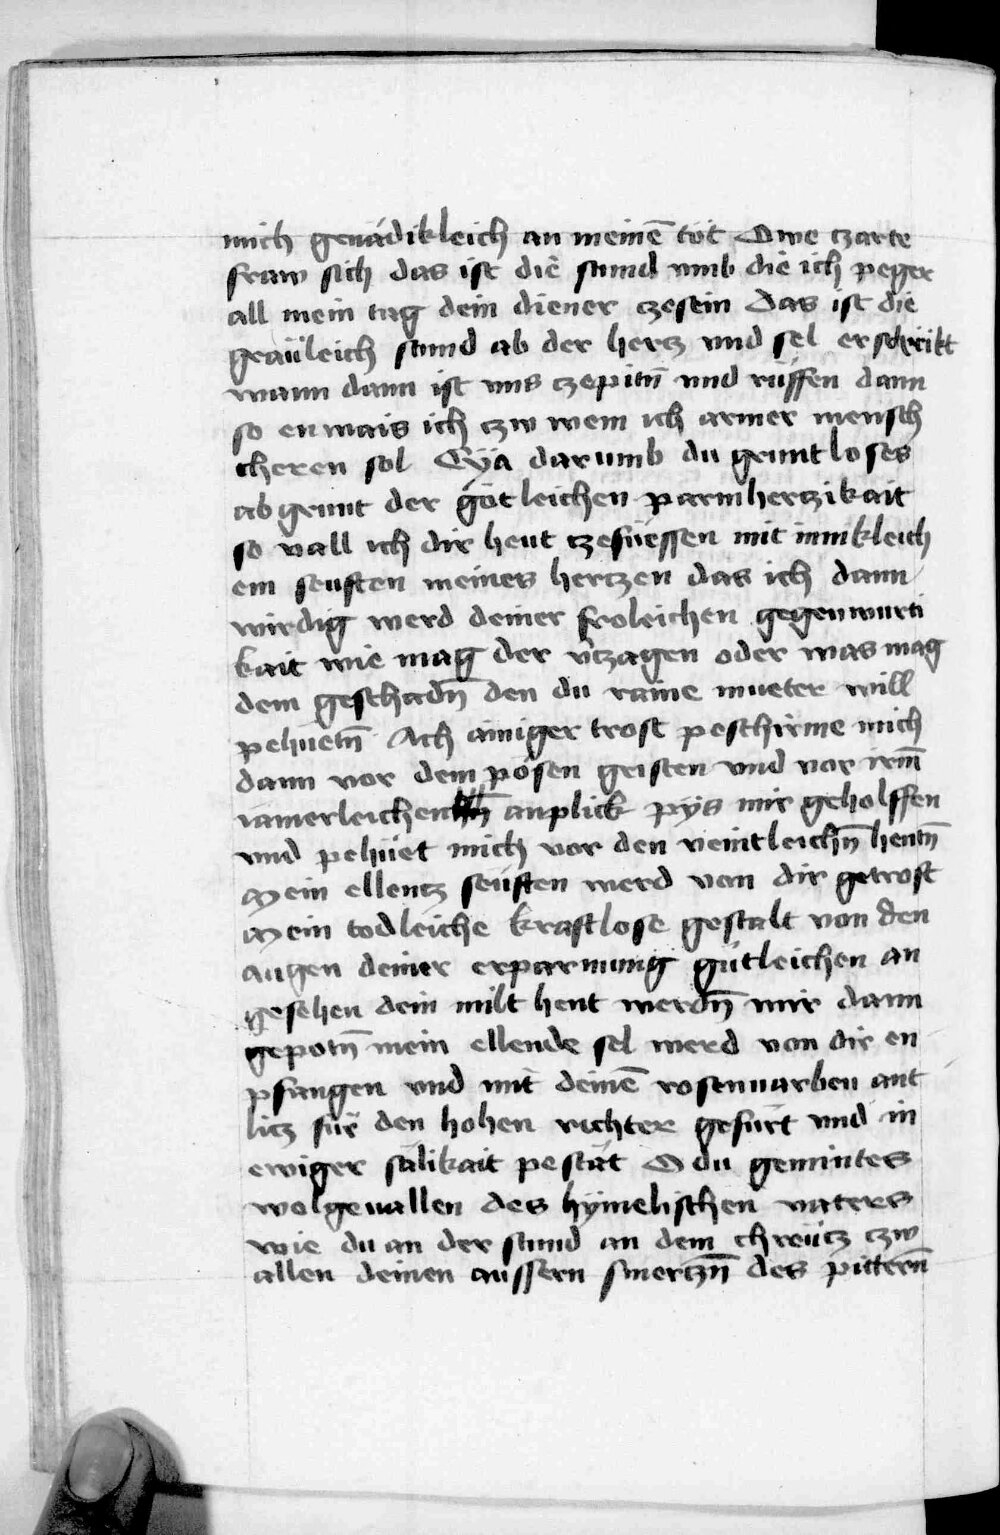 mich genádikleich an meinē töt Owe czarte
fraw sich das ist die stund vmb die ich peger
all mein tag dein diener czesein Das ist die
gräuleich stund ab der hertz vnd sel erschrikt
wann dann ist vns czepitn̄ vnd rüffen dann
so enwais ich czw wem ich armer mensch
cheren sol Eÿa darumb du gruntloses
abgrunt der götleichen parmhertzikait
so vall ich dir heut czefüessen mit innikleich
em seuften meines hertzen das ich dann
wirdig werd deiner froleichen gegenwurti
kait wie mag der v̄czagen oder was mag
dem geschadn̄ den du raine mueter will
pehuetn̄ Ach ainiger trost peschirme mich
dann vor dem pösen geisten vnd vor irm̄
iamerleichen anplick pÿs mir geholffen
vnd pehüet mich vor den veintleichn̄ hentn̄
Mein ellentz seuften werd von dir getrost
Mein todleiche kraftlose gestalt von den
augen deiner erparmung gütleichen an
gesehen dein milt hent werdn̄ mir dann
gepotn̄ mein ellende sel werd von dir en
pfangen vnd mit deinē rosenuarben ant
litz für den hohen richter gefürt vnd in
ewiger sälikait pestät O du gemintes
wolgeuallen des hÿmelischen vaters
wie du an der stund an dem chreütz czw
allen deinen aussern smertzn̄ des pittern̄